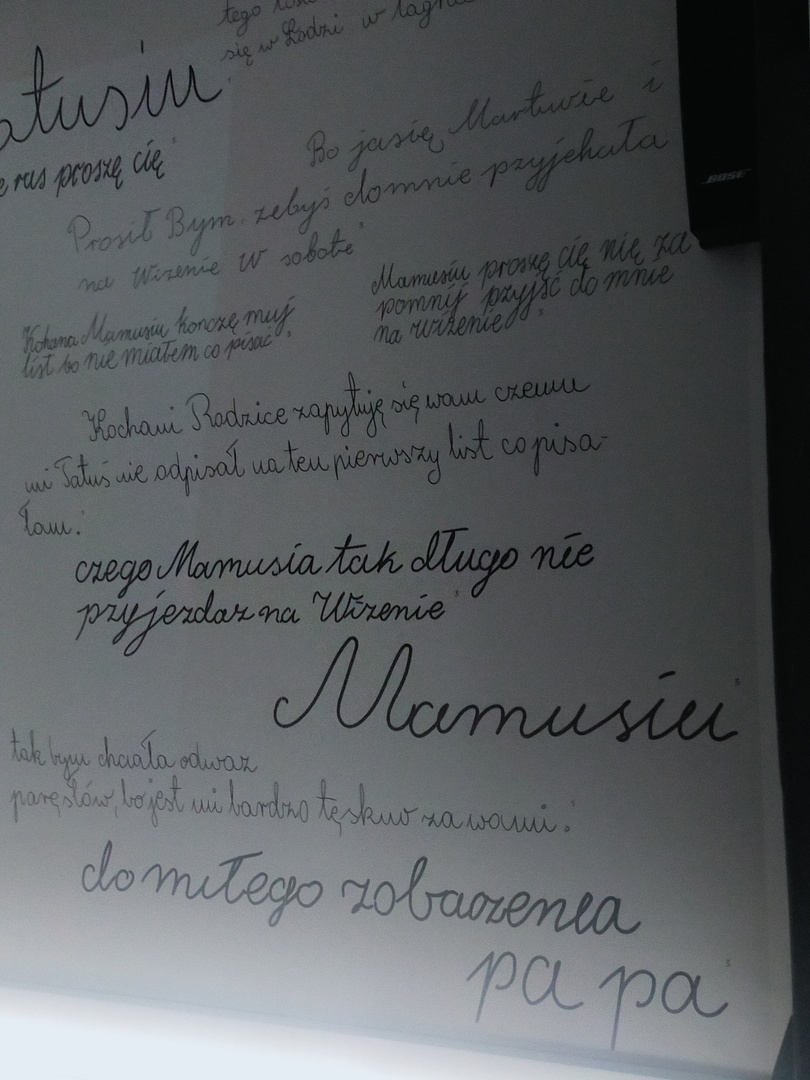 tego
się w Łodzi w łagrze
atusiu
ras proszę cię
Bo jasię Martwie i
Prosił Bym. zebyś domnie przyjehała
na Wizenie W sobote
BOSE
Mamusiu proszę cię nię za
pomnij przyjść do mnie
na wiżenie
Kohana Mamusiu kończę muj
list bo nie miałem co pisać
Kochani Rodzice zapytuję się wam czemu
mi Tatuś nie odpisał na ten pierwszy list co pisa-
łam.
czego Mamusia tak długo nie
przyjezdaz na Wizenie
Mamusiu
tak bym chciała odwaz
paręsłów, bo jest mi bardzo tęskno za wami.
do miłego zobaczenia
pa pa